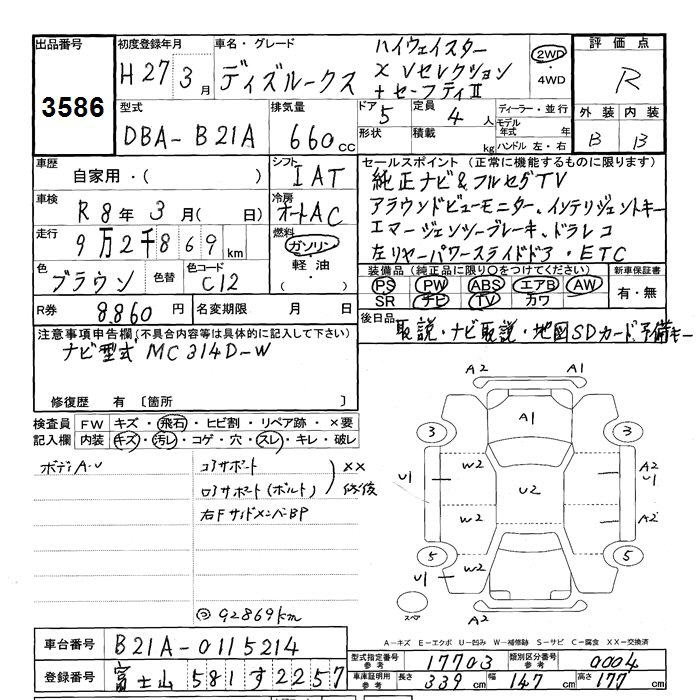 出品番号 初度登録年月 車名・グレード ハイウェイスター 2WD 評価点
3586 H27 3月 デイズルークス X Vセレクション 4WD R
+セーフティII
型式 排気量 ドア 定員 ディーラー・並行 外装 内装
DBA-B21A 660cc 5 4人 モデル年式 年 B B
形状 積載 kg ハンドル 左・右
車歴 自家用・( ) シフト IAT セールスポイント(正常に機能するものに限ります)
純正ナビ&フルセグTV
車検 R8年3月( 日) 冷房 オートAC アラウンドビューモニター、インテリジェントキー
走行 9万2千869km 燃料 ガソリン・軽油・( ) エマージェンジーブレーキ、ドラレコ
左リヤーパワースライドドア・ETC
色 ブラウン 色替 色コード C12 装備品(純正品に限り○をつけてください) 新車保証書
PS PW ABS エアB AW 有・無
SR ナビ TV カワ
R券 8860円 名変期限 月 日
後日品 取説・ナビ取説・地図SDカード、予備キー
注意事項申告欄(不具合内容等は具体的に記入して下さい)
ナビ型式 MC314D-W
修復歴 有〔箇所
検査員 FW キズ・飛石・ヒビ割・リペア跡・×要
記入欄 内装 キズ・汚レ・コゲ・穴・スレ・キレ・破レ
ボディA.U コアサポート
ロアサポート(ボルト) ××
修復
右FサイドメンバーBP
A2 A1
A1
3 3
W2 A2
U1 U2 U1
W2 A2
5 5
U1 W2
A2
スペア
92869km
A-キズ E-エクボ U-凹み W-補修跡 S-サビ C-腐食 XX-交換済
車台番号 B21A-0115214
型式指定番号 参考 17703 類別区分番号 参考 0004
登録番号 富士山 581 す 2257
車庫証明用 参考 長さ 339cm 幅 147cm 高さ 177cm